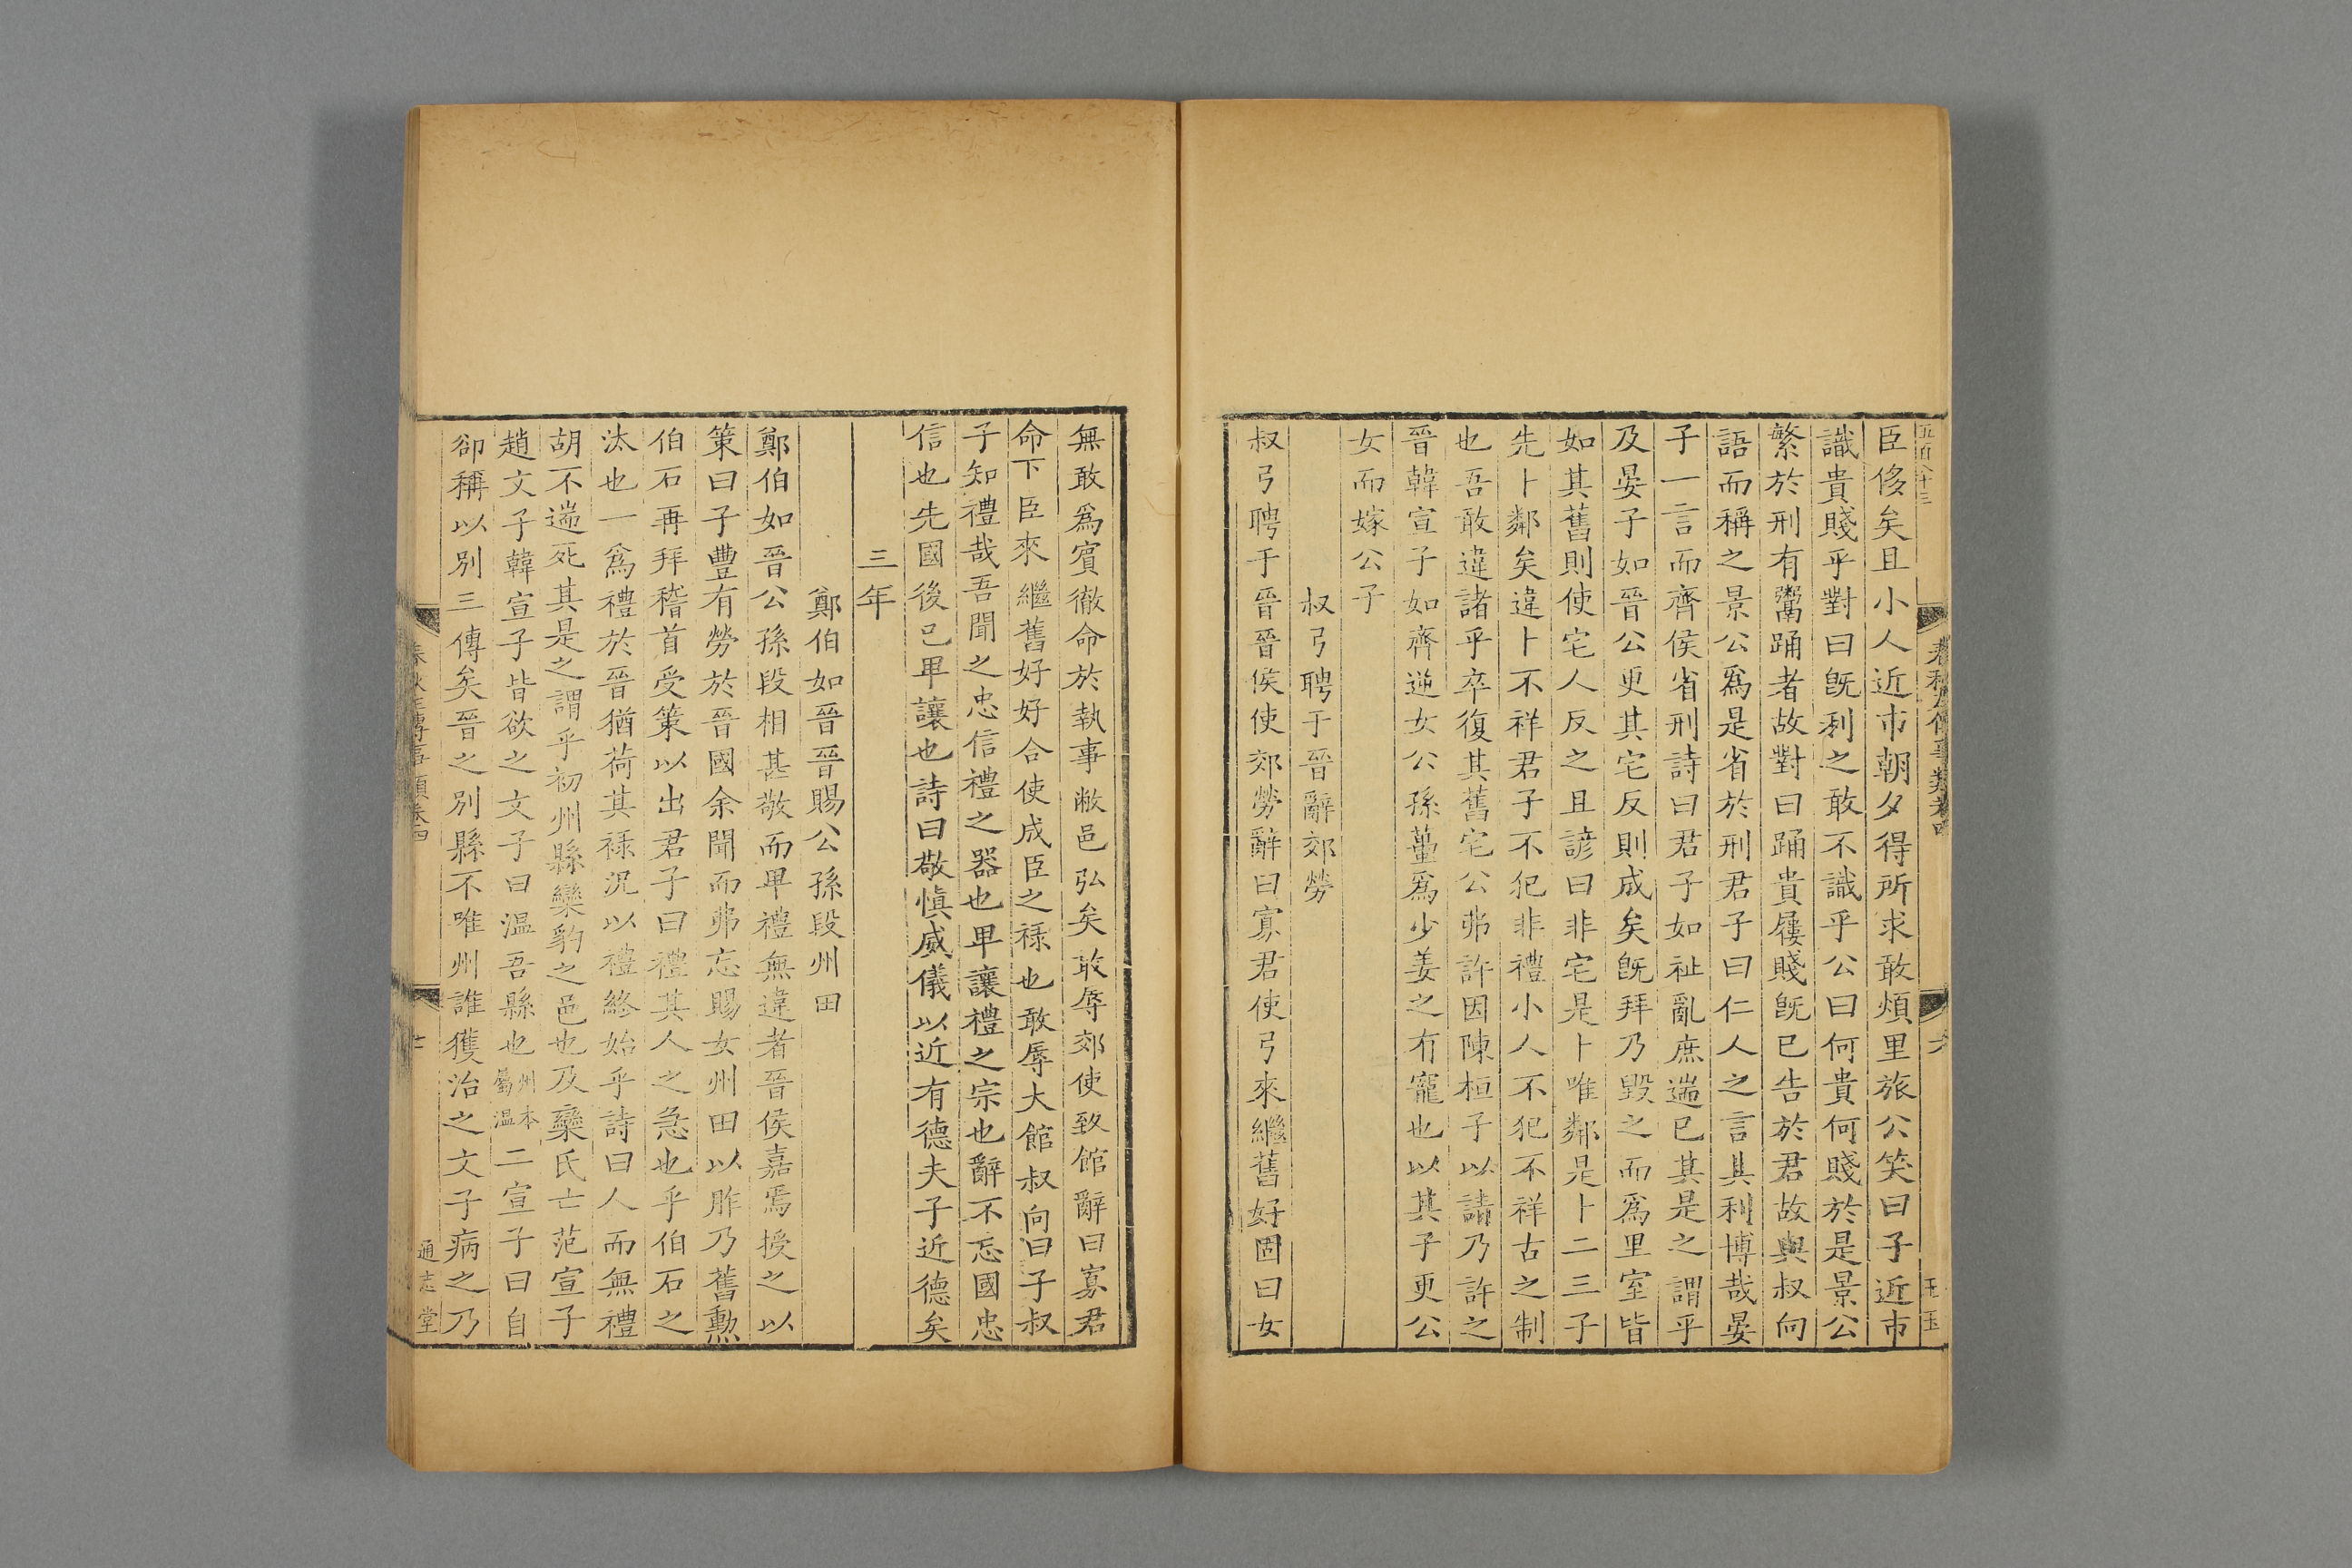 臣侈矣且小人近市朝夕得所求敢煩里旅公笑曰子近市
識貴賤乎對曰旣利之敢不識乎公曰何貴何賤於是景公
繁於刑有鬻踊者故對曰踊貴屨賤旣已告於君故與叔向
語而稱之景公爲是省於刑君子曰仁人之言其利博哉晏
子一言而齊侯省刑詩曰君子如祉亂庶遄已其是之謂乎
及晏子如晉公更其宅反則成矣旣拜乃毀之而爲里室皆
如其舊則使宅人反之且諺曰非宅是卜唯鄰是卜二三子
先卜鄰矣違卜不祥君子不犯非禮小人不犯不祥古之制
也吾敢違諸乎卒復其舊宅公弗許因陳桓子以請乃許之
晉韓宣子如齊逆女公孫蠆爲少姜之有寵也以其子更公
女而嫁公子
叔弓聘于晉辭郊勞
叔弓聘于晉晉侯使郊勞辭曰寡君使弓來繼舊好固曰女
無敢爲賓徹命於執事敝邑弘矣敢辱郊使致館辭曰寡君
命下臣來繼舊好好合使成臣之祿也敢辱大館叔向曰子叔
子知禮哉吾聞之忠信禮之器也卑讓禮之宗也辭不忘國忠
信也先國後己卑讓也詩曰敬愼威儀以近有德夫子近德矣
三年
鄭伯如晉晉賜公孫段州田
鄭伯如晉公孫段相甚敬而卑禮無違者晉侯嘉焉授之以
策曰子豐有勞於晉國余聞而弗忘賜女州田以胙乃舊勲
伯石再拜稽首受策以出君子曰禮其人之急也乎伯石之
汰也一爲禮於晉猶荷其祿況以禮終始乎詩曰人而無禮
胡不遄死其是之謂乎初州縣欒豹之邑也及欒氏亡范宣子
趙文子韓宣子皆欲之文子曰溫吾縣也州本屬溫二宣子曰自
郤稱以別三傳矣晉之別縣不唯州誰獲治之文子病之乃
春秋左傳事類卷四
通志堂